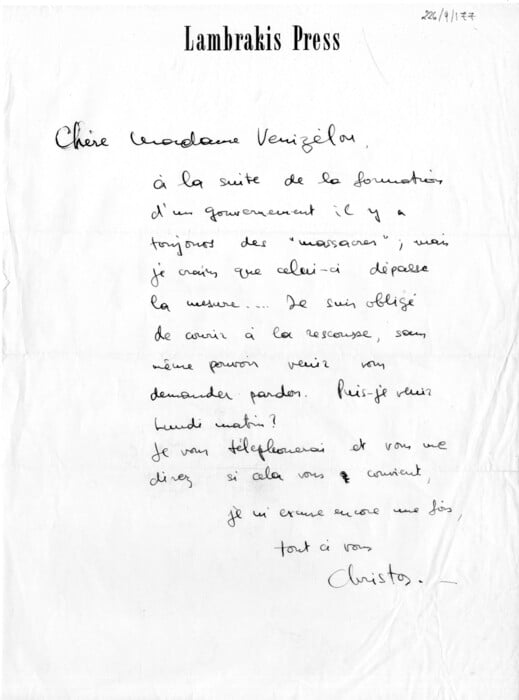 226/9/177
Lambrakis Press
Chère Madame Venizélou,
à la suite de la formation
d'un gouvernement il y a
toujours des "massacres"; mais
je crains que celui-ci dépasse
la mesure.... Je suis obligé
de courir à la rescousse, sans
même pouvoir venir vous
demander pardon. Puis-je venir
Lundi matin?
Je vous téléphonerai et vous me
direz si cela vous convient,
je m'excuse encore une fois,
tout à vous
Christos.